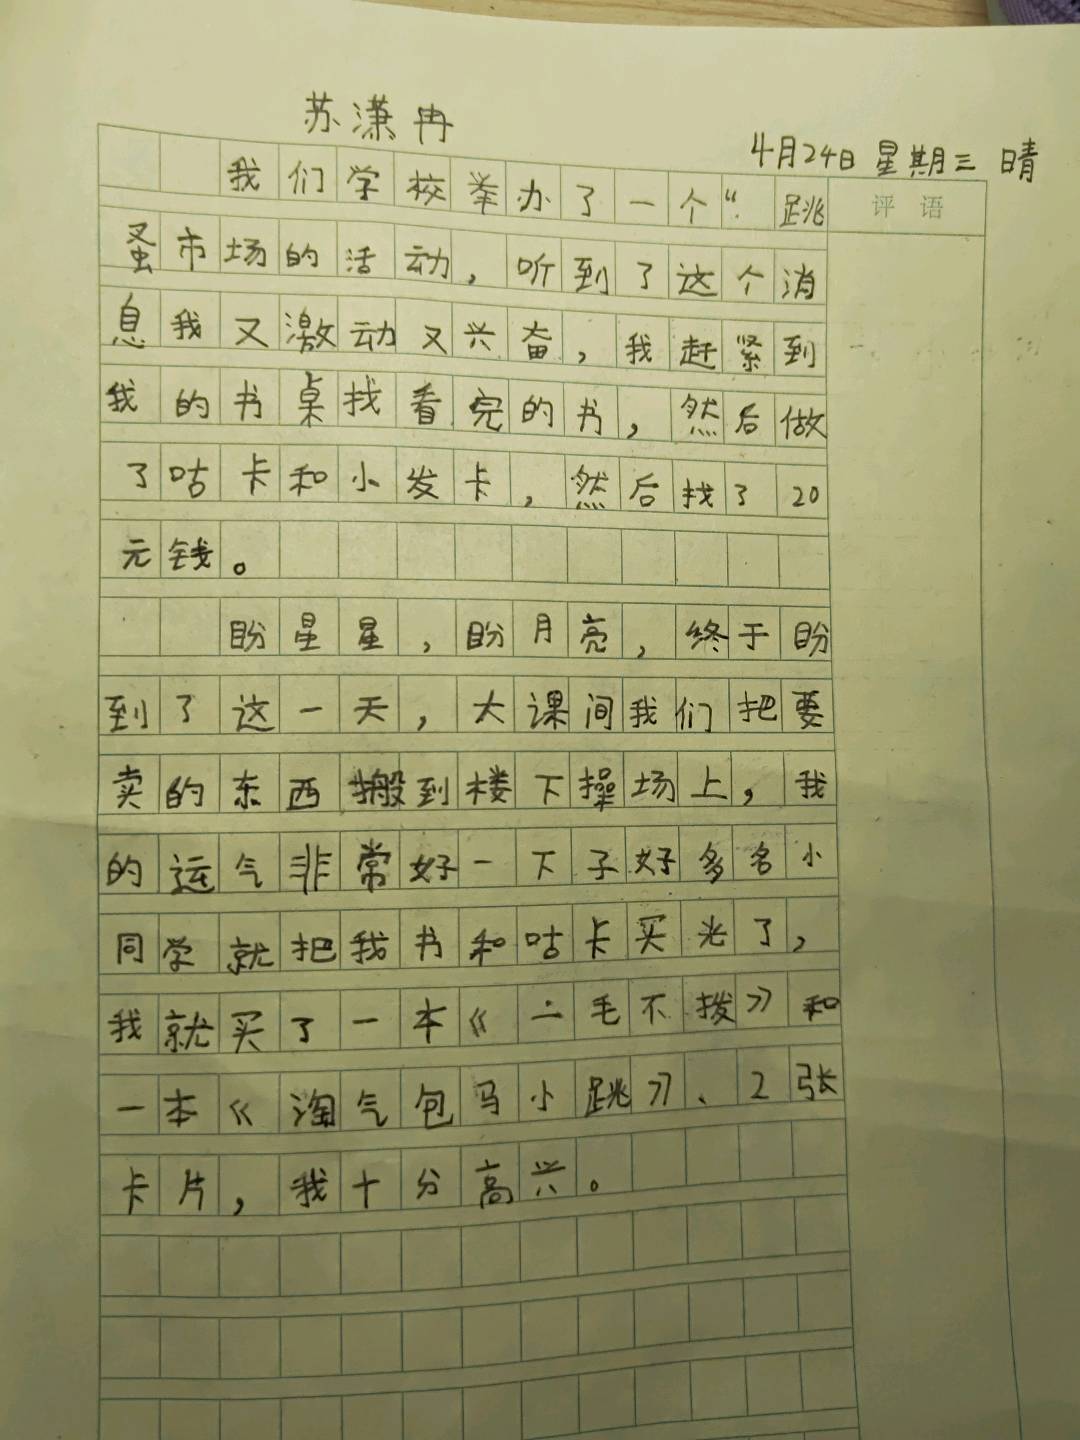 苏潇冉
4月24日 星期三 晴
评语
我们学校举办了一个“跳
蚤市场的活动，听到了这个消
息我又激动又兴奋，我赶紧到
我的书桌找看完的书，然后做
了咕卡和小发卡，然后找了20
元钱。
盼星星，盼月亮，终于盼
到了这一天，大课间我们把要
卖的东西搬到楼下操场上，我
的运气非常好一下子好多名小
同学就把我书和咕卡买光了，
我就买了一本《一毛不拨》和
一本《淘气包马小跳》、2张
卡片，我十分高兴。